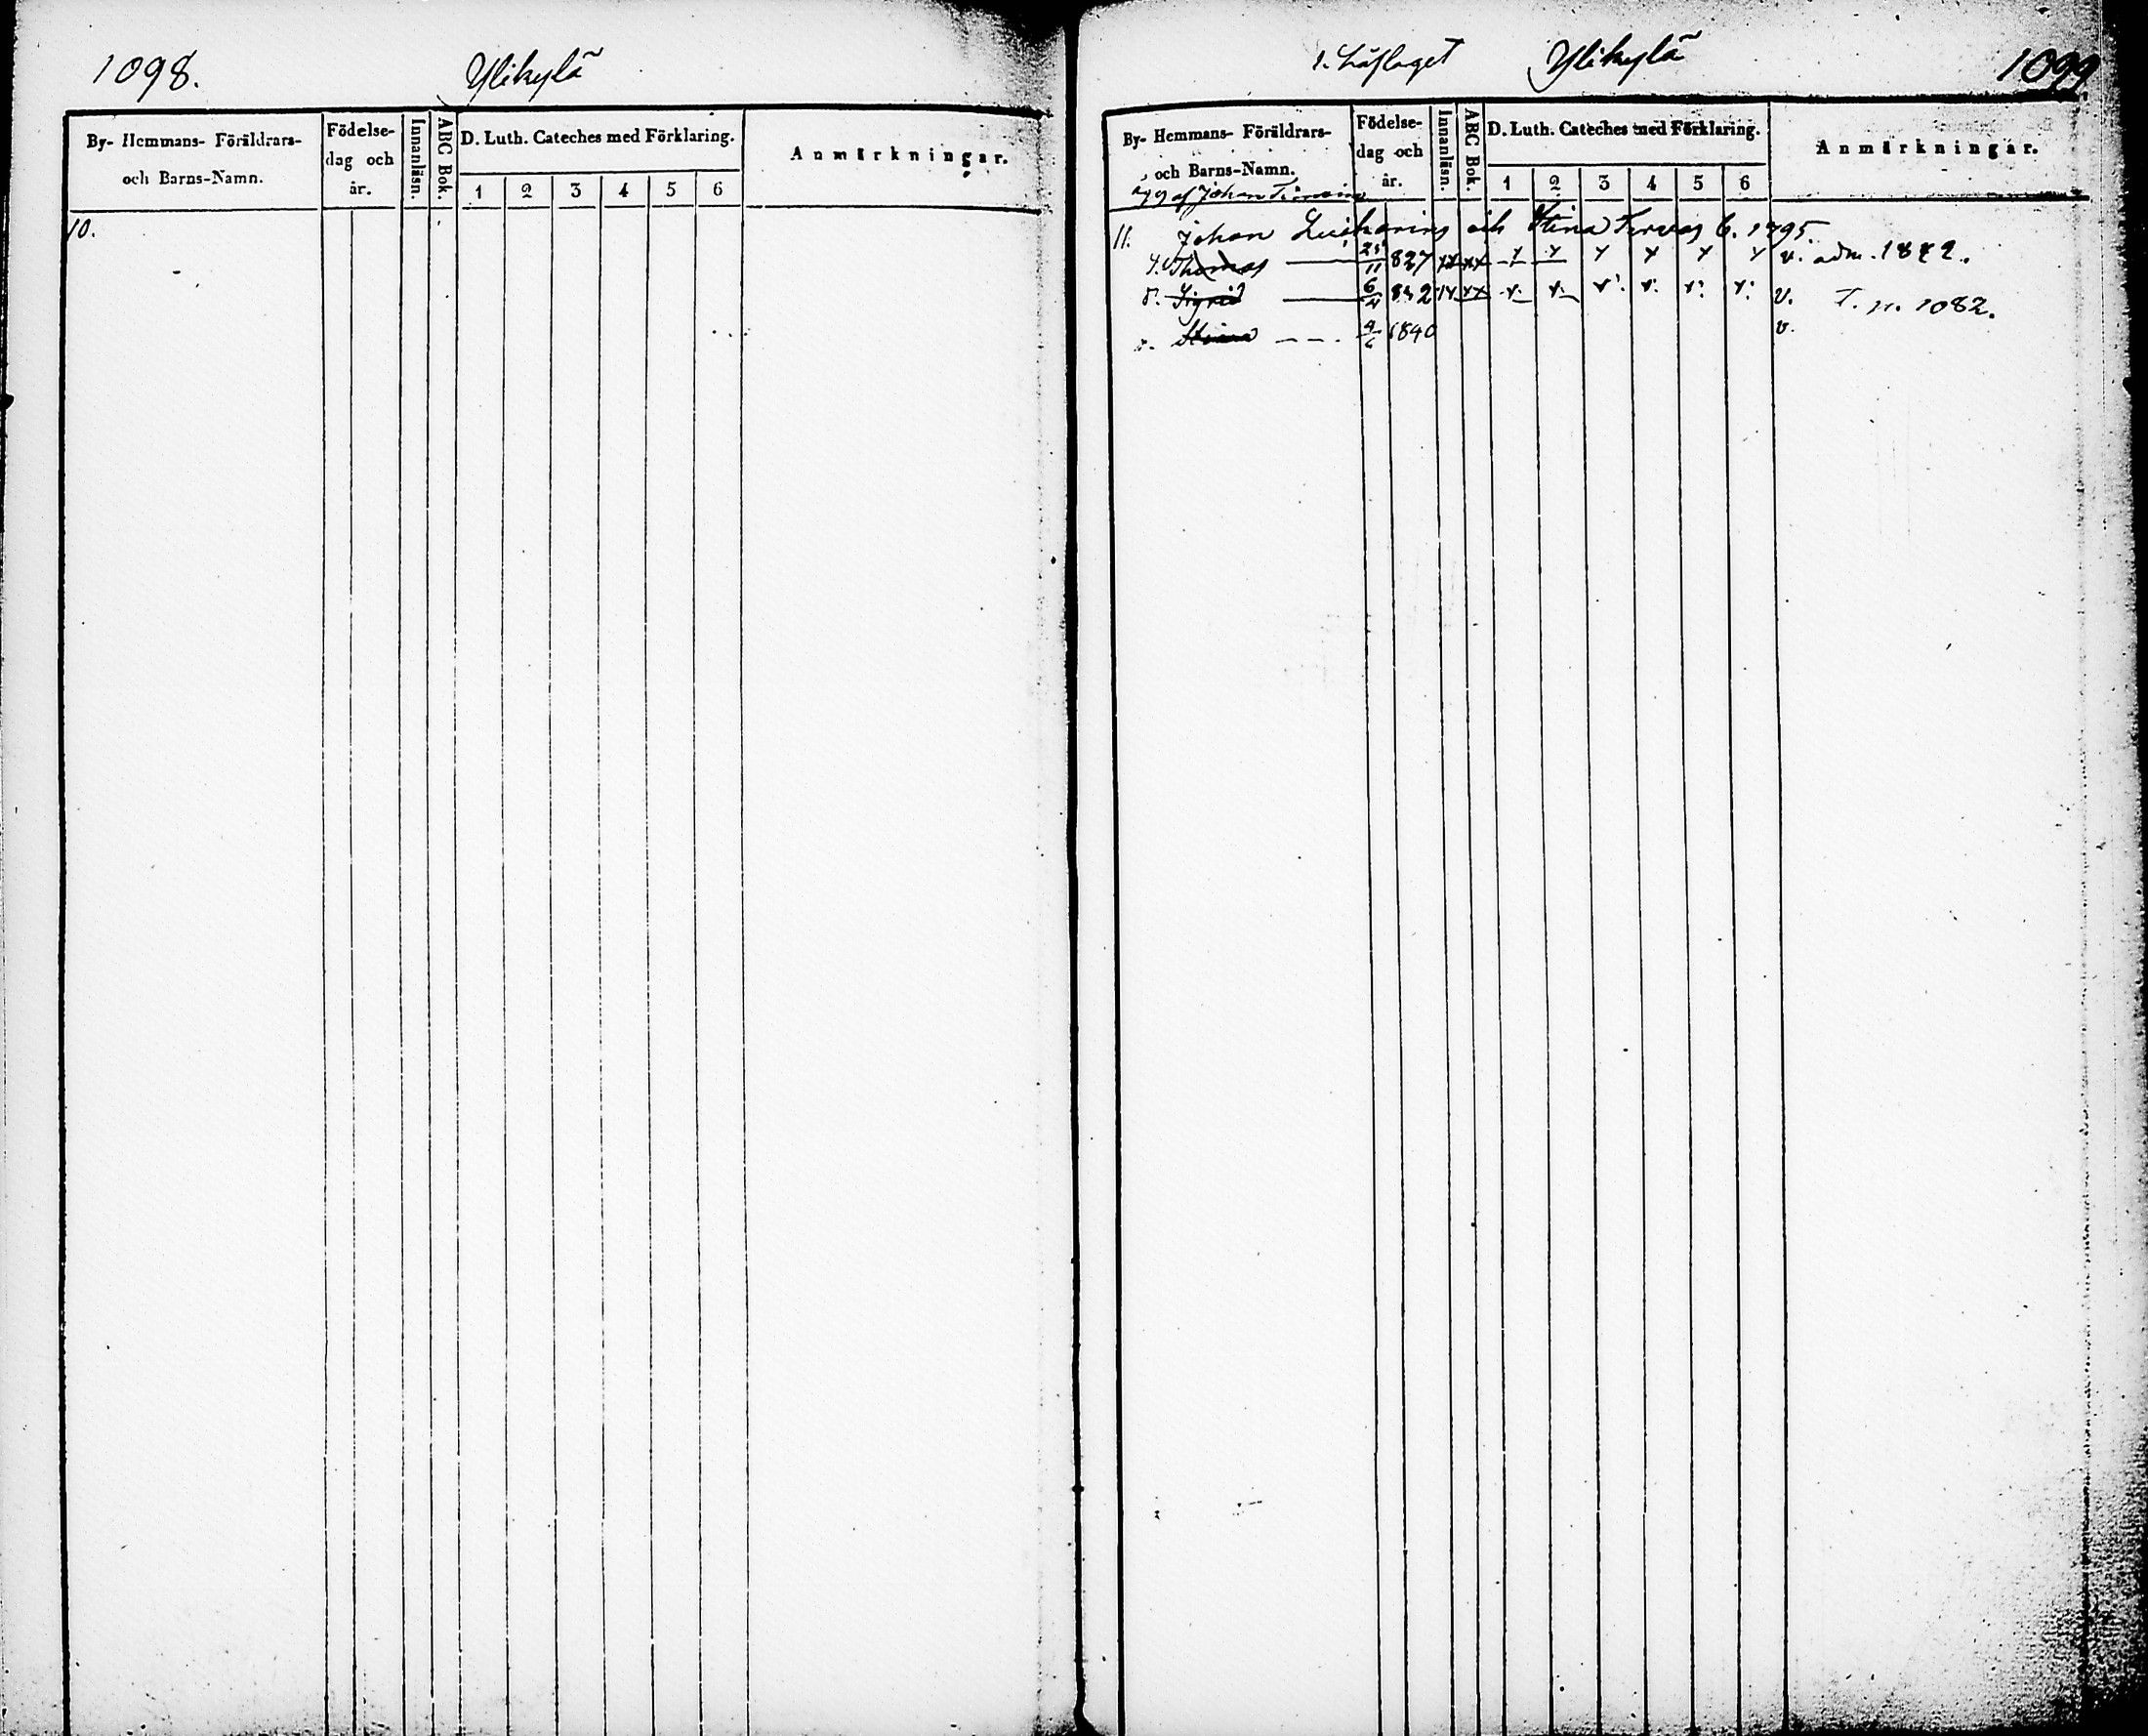 1098. Ylikylä
By- Hemmans- Föräldrars- och Barns-Namn. Födelse- dag och år. Innanläsn. ABC Bok. D. Luth. Cateches med Förklaring. Anmärkningar.
1 2 3 4 5 6
10.
1. Ylikylä 1099
By- Hemmans- Föräldrars- och Barns-Namn. Födelse- dag och år. Innanläsn. ABC Bok. D. Luth. Cateches med Förklaring. Anmärkningar.
1 2 3 4 5 6
af Johan
11. Johan och Stina 1795.
S. Thomas 11 827 xx xx x x x x x x v. adm. 1842.
D. Sigrid 6 832 xx x x x x x x v. T. n. 1082.
Stina 1840 v.